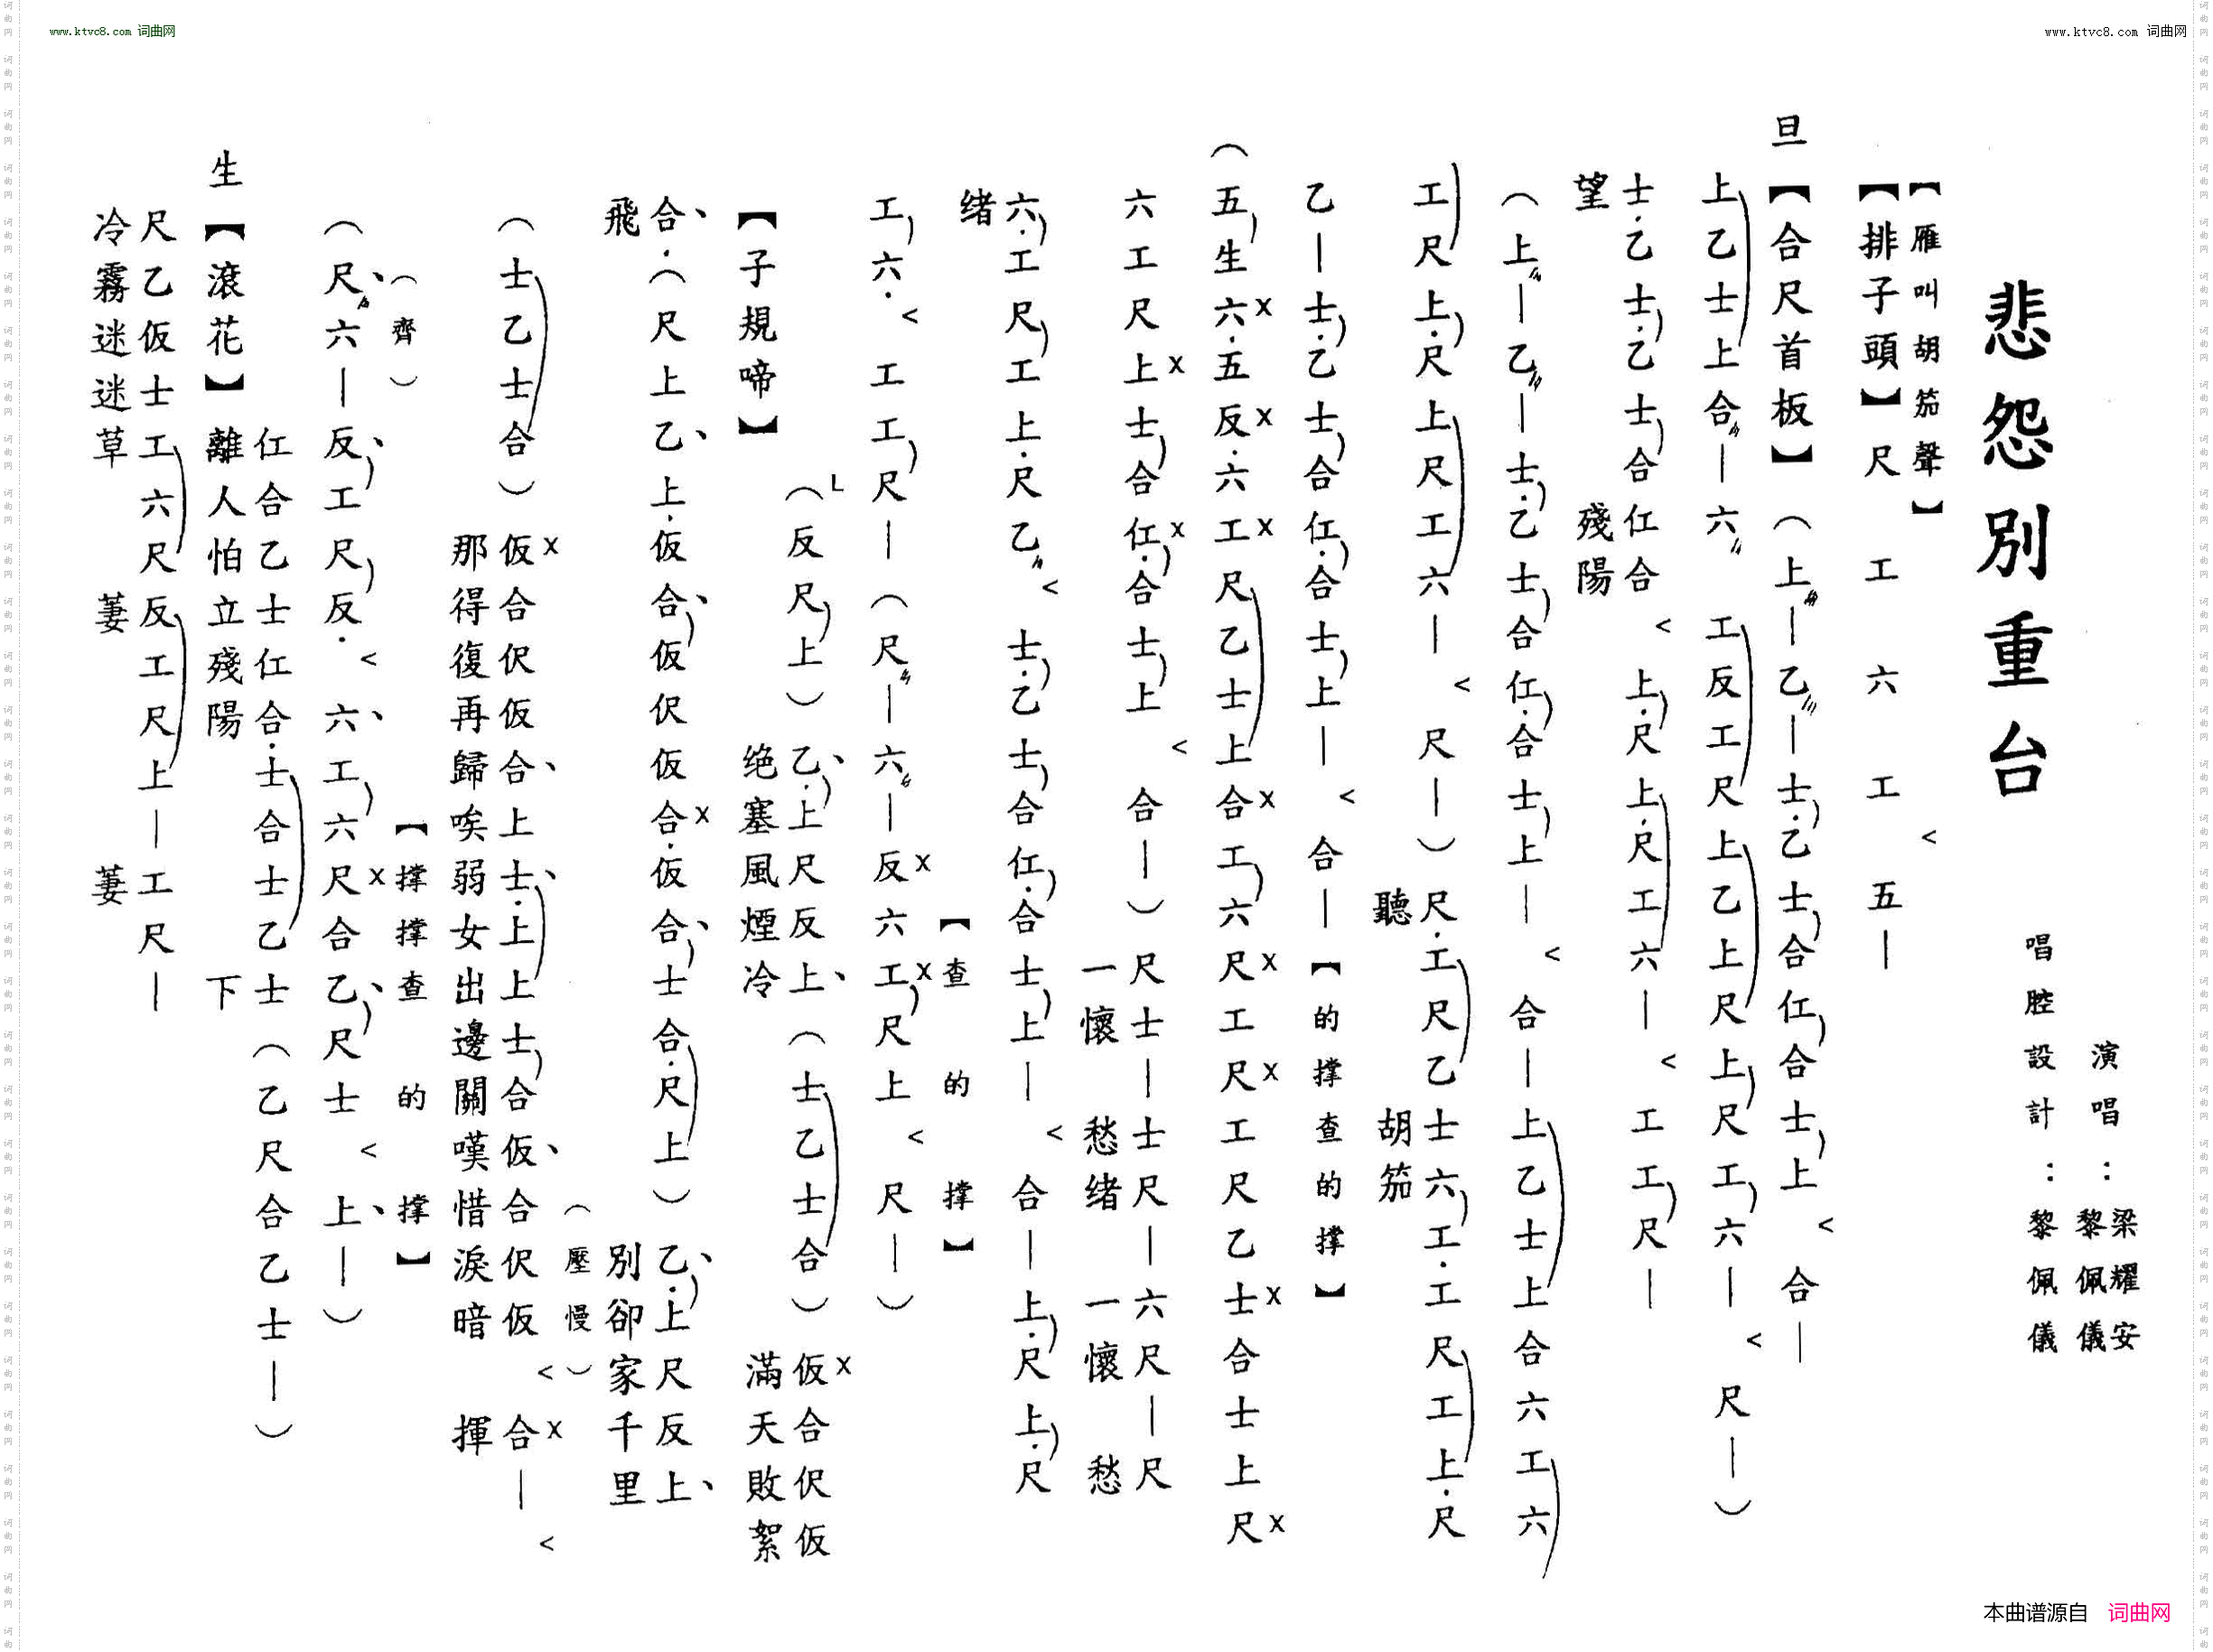 www.ktvc8.com 词曲网
www.ktvc8.com 词曲网
悲怨別重台
演唱：梁耀安
黎佩儀
唱腔設計：黎佩儀
【雁叫胡笳聲】 <
【排子頭】尺 工 六 工 五 —
旦【合尺首板】（上 — 乙 — 士·乙士合仁合士上 < 合 —
上乙士上合 — 六 工反工尺上乙上尺上尺工六 — < 尺 — ）
士·乙士·乙士合仁合 < 上·尺上·尺工六 — < 工工尺 —
望 殘陽
（上 — 乙 — 士·乙士合仁·合士上 — < 合 — 上乙士上合六工六
工尺上·尺上尺工六 — < 尺 — ）尺·工尺乙士六工·工尺工上·尺
聽 胡笳
乙 — 士·乙士合仁·合士上 — < 合 — 【的撐查的撐】
（五生六·五反·六工尺乙士上合工六尺工尺工尺乙士合士上尺
x x x x x x x x
六工尺上士合仁·合士上 < 合 — ）尺士 — 士尺 — 六尺 — 尺
x x
一懷 愁绪 一懷 愁
六·工尺工上·尺乙 < 士·乙士合仁·合士上 — < 合 — 上·尺上·尺
绪
【查 的 撐】
工六· < 工工尺 — （尺 — 六 — 反六工尺上 < 尺 — ）
x x
【子規啼】
（反尺上）乙·上尺反上（士乙士合）仮合伬仮
x
绝塞風煙冷 滿天敗絮
合·（尺上乙上·仮合仮伬仮合·仮合士合·尺上）乙·上尺反上
x
飛 別卻家千里
（壓慢）
（士乙士合）仮合伬仮合上士·上上士合仮合伬仮 < 合 — <
x x
那得復再歸唉弱女出邊關嘆惜淚暗 揮
（齊） 【撐撐查 的 撐】
（尺六 — 反工尺反· < 六工六尺合乙尺士 < 上 — ）
x
仁合乙士仁合·士合士乙士（乙尺合乙士 — ）
生【滾花】離人怕立殘陽 下
尺乙仮士工六尺反工尺上 — 工尺 —
冷霧迷迷草 萋 萋
本曲谱源自 词曲网